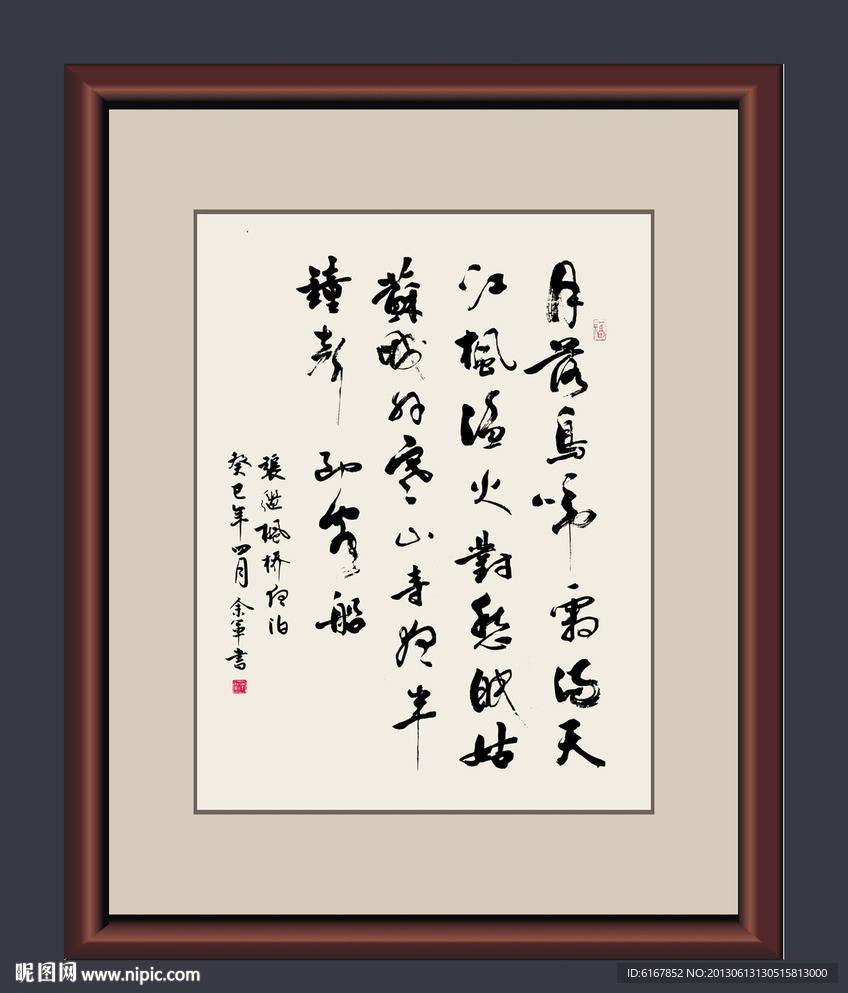 月落烏啼霜滿天
江楓漁火對愁眠姑
蘇城外寒山寺夜半
鐘聲到客船
張继楓桥夜泊
癸巳年四月余軍書
昵图网 www.nipic.com
ID:6167852 NO:20130613130515813000